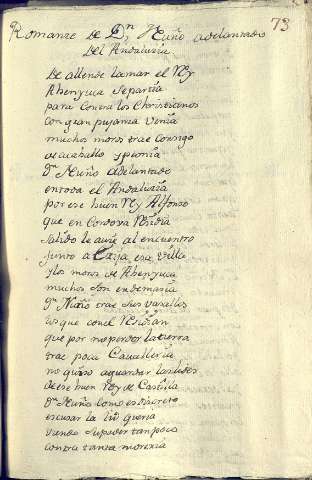 73
Romanze de Dn Nuño adelantado
Del Andaluzia
De allende la mar el Rey
Abenyuca se partia
para contra los christianos
con gran pujanza venia
muchos moros trae consigo
de cavallo y peonia
Dn Nuño Adelantado
en toda el Andaluzia
por ese buen Rey Alfonso
que en Cordova Residia
salido le avie al encuentro
junto a Ecija esa villa
y los moros de Abenyuca
muchos son en demasia
Dn Nuño trae sus vasallos
los que con el Residian
que por no perder la tierra
trae poca Cavalleria
no quiso aguardar las lides
de ese buen Rey de Castilla
Dn Nuño como es discreto
escusar la lid queria
viendo su poder tan poco
contra tanta moreria